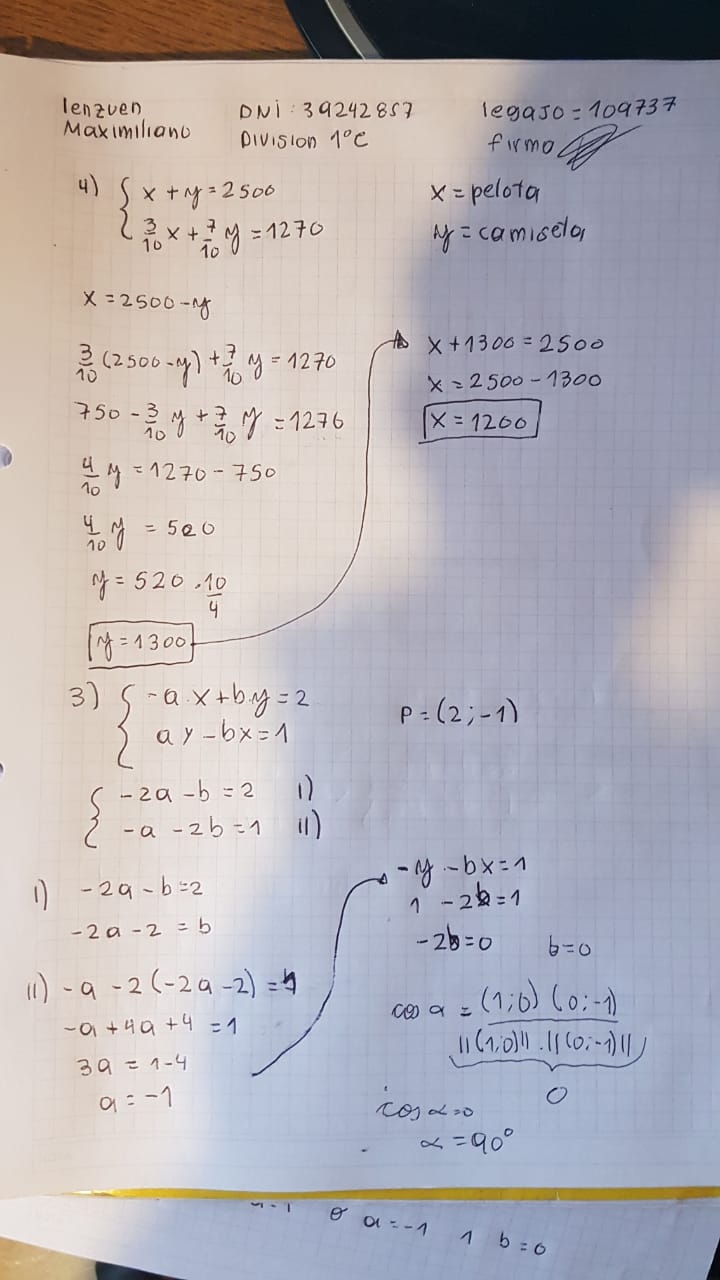 lenzuen
Maximiliano
DNI : 39242857
DIVISION 1°C
legajo = 109737
firmo
4) { x + y = 2500
3/10 x + 7/10 y = 1270
x = pelota
y = camiseta
x = 2500 - y
3/10 (2500 - y) + 7/10 y = 1270
750 - 3/10 y + 7/10 y = 1270
4/10 y = 1270 - 750
4/10 y = 520
y = 520 . 10/4
y = 1300
x + 1300 = 2500
x = 2500 - 1300
x = 1200
3) { -a.x + b.y = 2
ay - bx = 1
P = (2 ; -1)
{ -2a - b = 2 I)
-a - 2b = 1 II)
I) -2a - b = 2
-2a - 2 = b
II) -a - 2(-2a - 2) = 1
-a + 4a + 4 = 1
3a = 1 - 4
a = -1
-y - bx = 1
1 - 2b = 1
-2b = 0 b = 0
cos a = (1;0) (0;-1) / ||(1;0)|| . ||(0;-1)||
0
cos α = 0
α = 90°
a = -1 1 b = 0